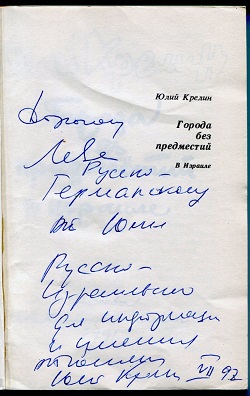 Юлий Крелин
Города
без
предместий
В Израиле
Дорогому
Леве
Русско-
Германскому
от Юлия
Русско-
Израильского
для информации
и
Юлий Крелин VII 92